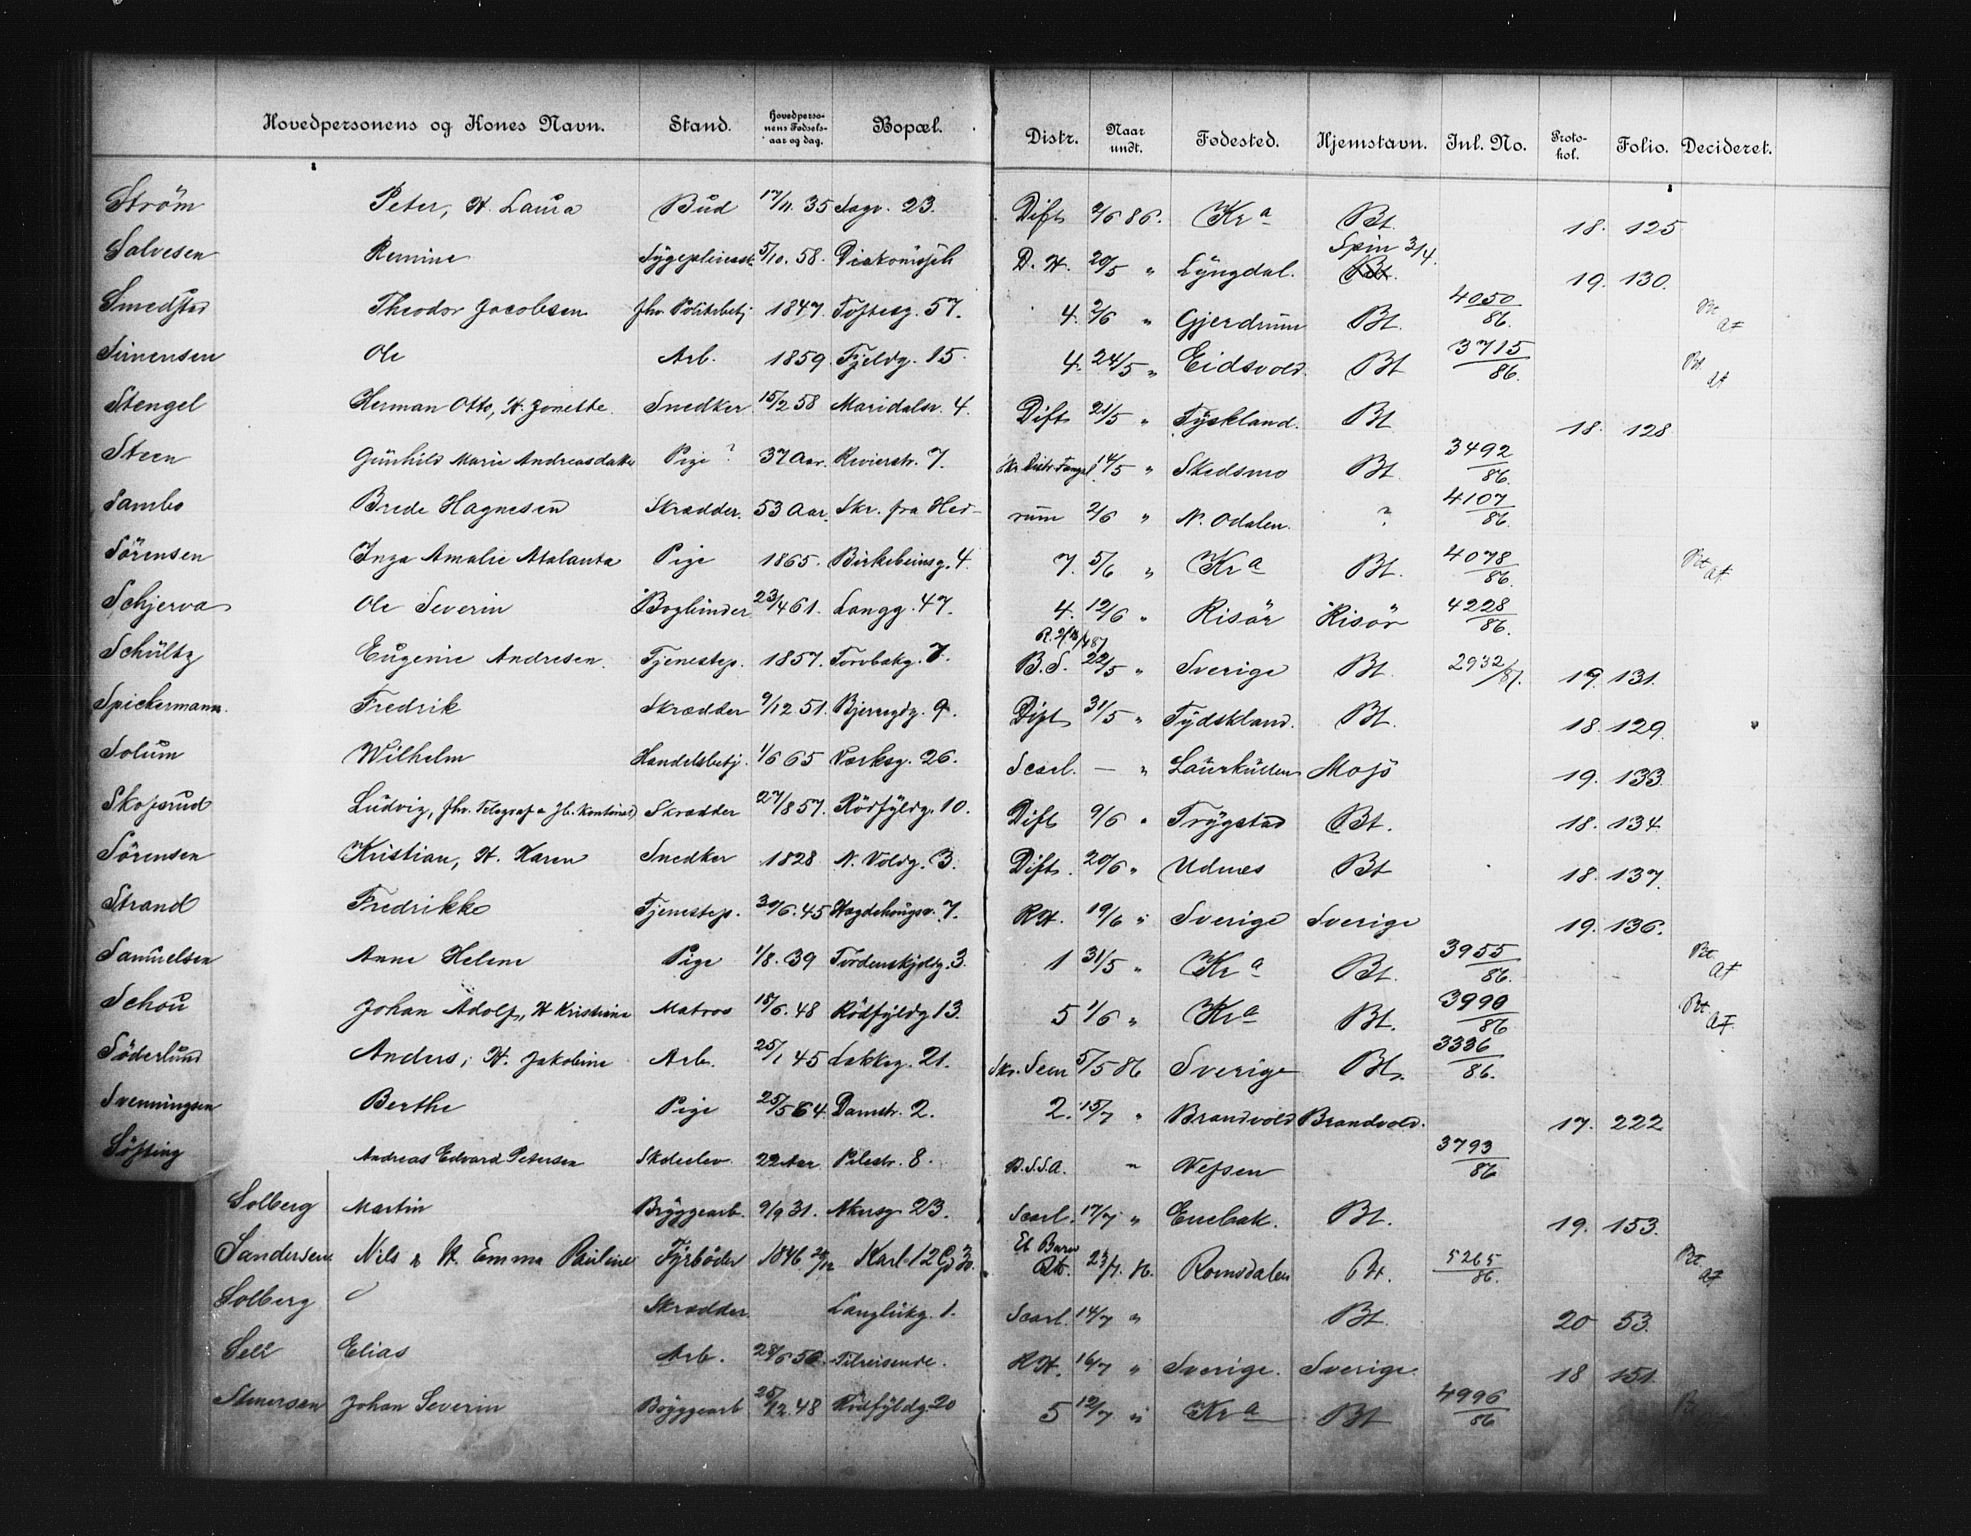 Hovedpersonens og Kones Navn. Stand. Hovedpersonens Fødselsaar og dag. Bopæl. Distr. Naar undt. Fødested. Hjemstavn. Inl. No. Protokol. Folio. Decideret.
Ström Peter, H. Laura Bud 17/11 35 Sagv. 23. Dift 2/6 86. Kra Bt. 18. 125
Salvesen Remine 5/10. 58. D. H. 20/5 " Lyngdal. Spin 3/4. Bt. 19. 130.
Smedstad Theodor Jacobsen fhv. Politibetj. 1847. Toftesg. 57. 4. 2/6 " Gjerdrum Bt. 4050/86. Bt. af
Simensen Ole Arb. 1859. Fjeldg. 15. 4. 24/5 " Eidsvold. Bt 3715/86. Bt af
Stengel Herman Otto, H. Jonette. Snedker 15/2 58 Maridalsv. 4. Dift 21/5 " Tyskland. Bt 18. 128
Steen Gunhild Marie Andreasdatter Pige ? 37 Aar. Rivierstr. 7. 14/5 " Skedsmo Bt. 3492/86.
Sambo Brede Hagnesen Skrædder. 53 Aar. Skr. fra Hed- rum 2/6 " N. Odalen. ? 4107/86.
Sörensen Inga Amalie Atalanta Pige 1865. Birkebeinsg. 4. 7. 5/6 " Kra Bt. 4078/86. Bt. af
Schjerva Ole Severin Bogbinder 23/4 61. Langg. 47. 4. 12/6 " Risör Risör 4228/86.
Schültz Eugenie Andresen. Tjenestep. 1857. Torvbakg. 7. B.S. 22/5 " Sverige Bt. 2932/87. 19. 131.
Spickermann. Fredrik Skrædder 9/12 51. Bjerregdg. 9. Dift 31/5 " Tydskland. Bt. 18. 129.
Solum Wilhelm Handelsbetj. 1/6 65 Værksg. 26. Scarl. — " Laurkullen Mosjö 19. 133.
Skofsrud Ludvig, fhv. Telegraf a Jb. Kontoret) Skrædder 27/8 57. Rödfyldg. 10. Dift 9/6 " Trygstad Bt. 18. 134.
Sörensen Kristian, H. Karen Snedker 1828 N. Voldg. 3. Dift. 20/6 " Udnæs Bt 18. 137.
Strand Fredrikke Tjenestep. 30/6. 45 Hagdehougsv. 7. RH. 19/6 " Sverige Sverige 19. 136.
Samuelsen Anne Helene Pige 1/8. 39 Tordenskjoldg. 3. 1 31/5 " Kra Bt. 3955/86. Bt. af
Schou Johan Adolf, H Kristiane Matros 15/6. 48 Rödfyldg 13. 5 1/6 " Kra Bt. 3990/86 Bt. af.
Söderlund Anders, H. Jakobine Arb. 25/1 45 Lakkeg. 21. Skr. Seem 5/5 86 Sverige Bt. 3336/86.
Svenningsen Berthe Pige 25/5 64. Damstr. 2. 2. 15/7 " Brandvold Brandvold. 17. 222
Söfting Andreas Edvard Petersen Skoleelev 22 Aar Pilestr. 8. B.S.S.A. " Vefsen 3793/86
Solberg Martin Bryggearb. 9/9 31. Akersg 23. Scarl. 17/7 " Enebak. Bt. 19. 153.
Sandersen Nils & H. Emma Pauline Fyrböder 1846 20/12 Karl 12 G. 30. Et Barn RH. 23/7. 86. Romsdalen Bt. 5265/86. Bt. af
Solberg Skrædder. Langlükg. 1. Scarl. 14/7 " Bt. 20 53.
Sell Elias Arb. 28/6 56. Tilreisende. RH. 16/7 " Sverige. Sverige. 18 151.
Stenersen Johan Severin Bryggearb 25/12. 48 Rödfyldg. 20 5 12/7 " Kra Bt 4996/86 B